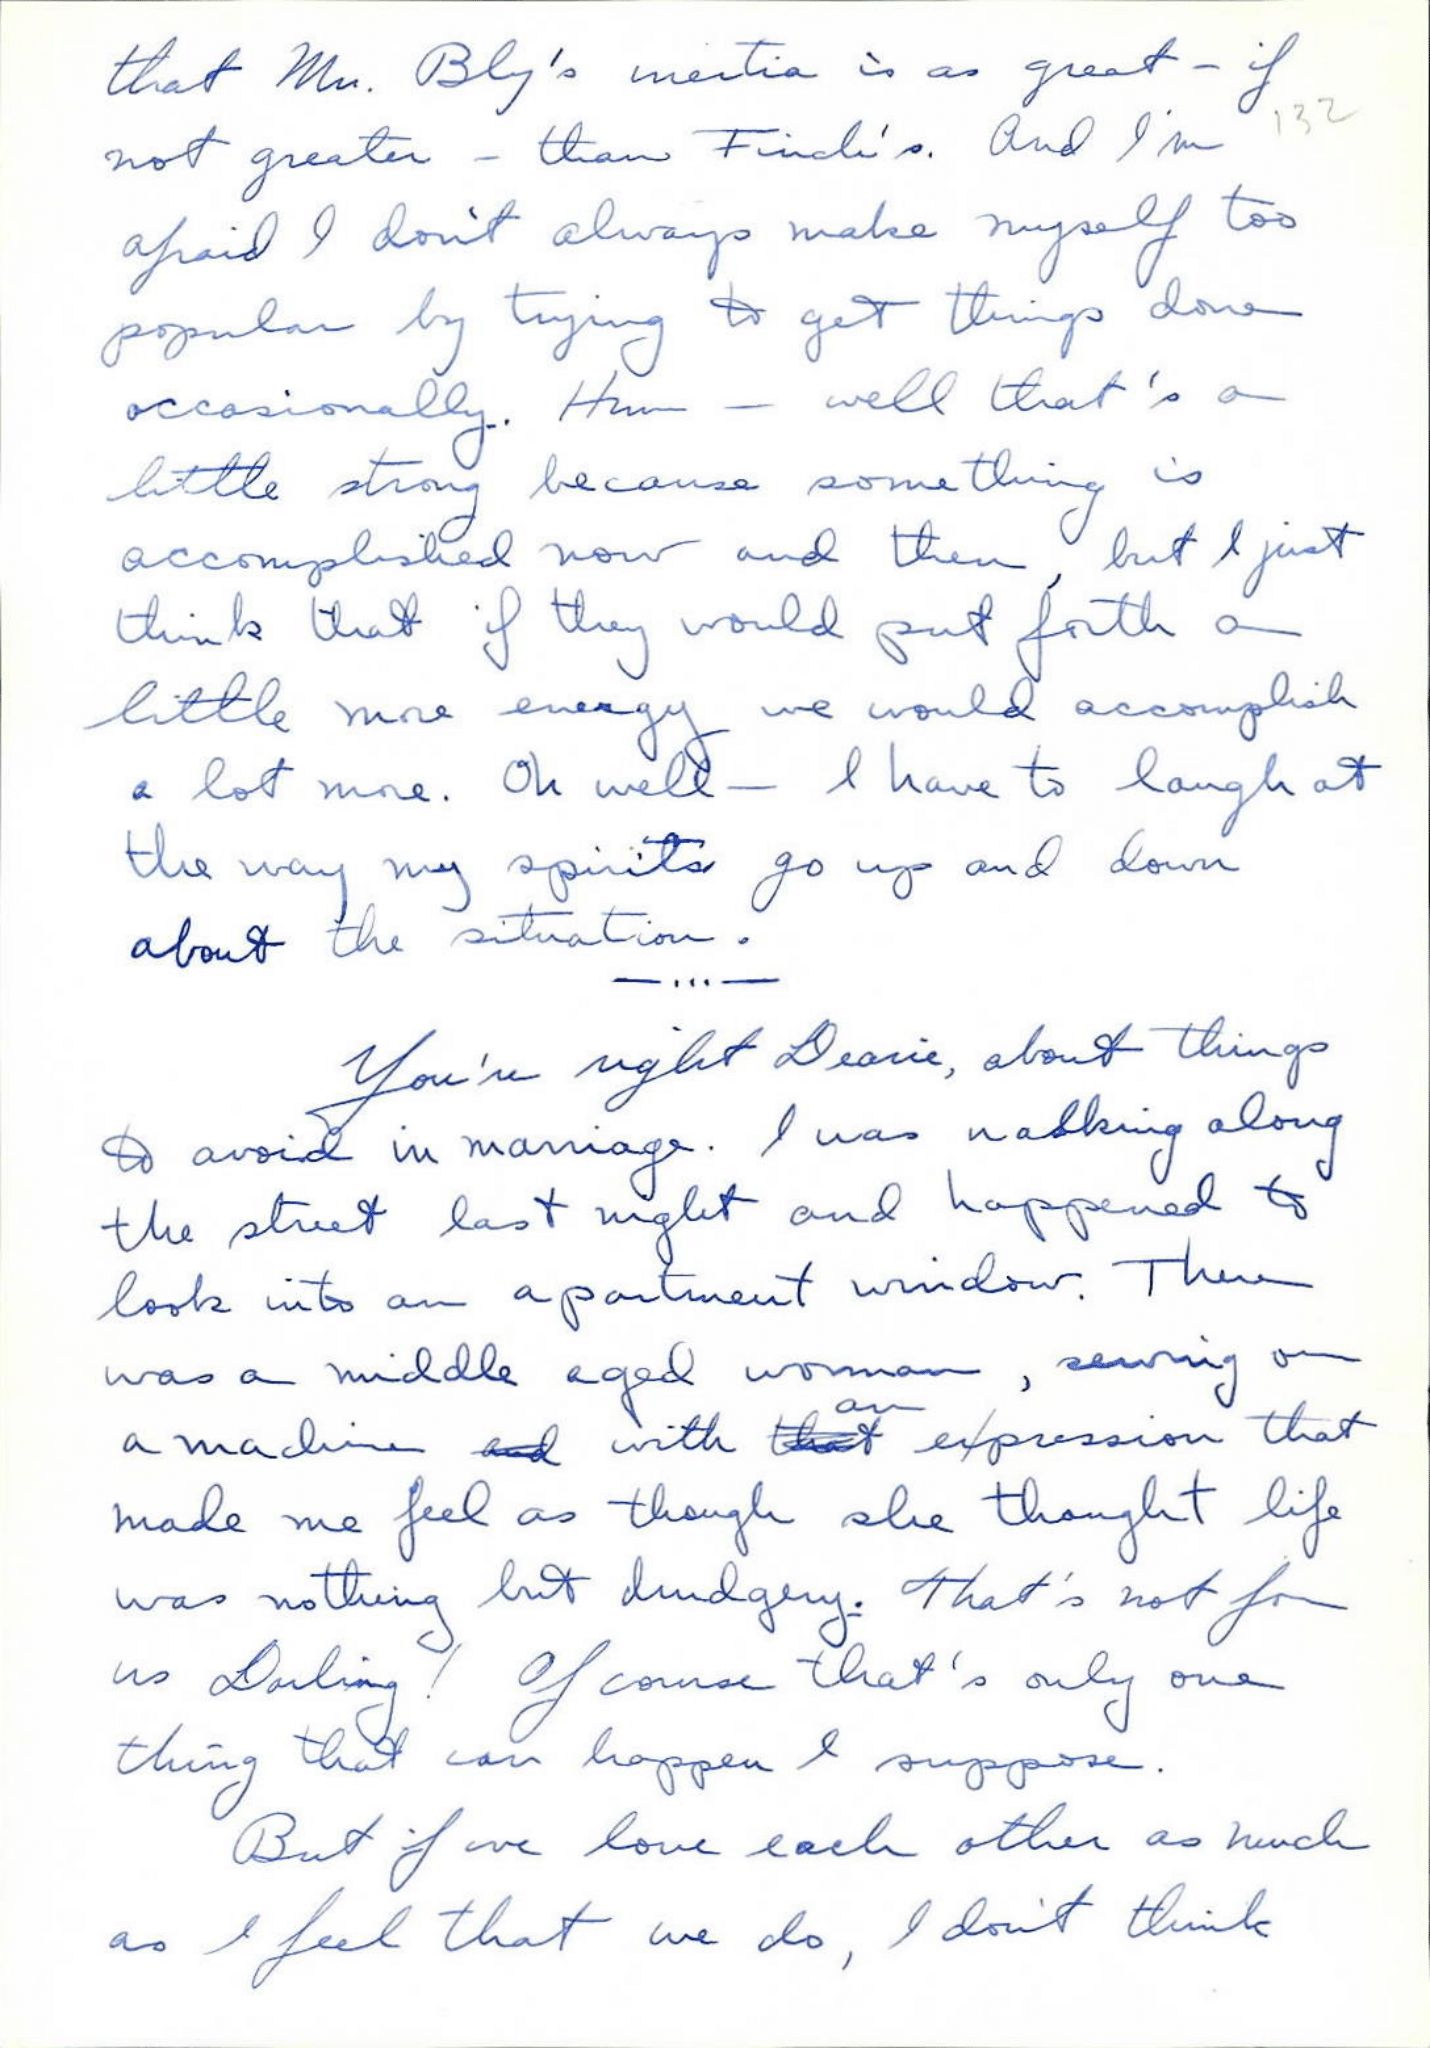 that Mr. Bly's inertia is as great – if
132
not greater – than Finch's. And I'm
afraid I don't always make myself too
popular by trying to get things done
occasionally. Hmm – well that's a
little strong because something is
accomplished now and then, but I just
think that if they would put forth a
little more energy we would accomplish
a lot more. Oh well – I have to laugh at
the way my spirits go up and down
about the situation.
—...—
You're right Dearie, about things
to avoid in marriage. I was walking along
the street last night and happened to
look into an apartment window. There
was a middle aged woman, sewing on
an
a machine and with that expression that
made me feel as though she thought life
was nothing but drudgery. That's not for
us Darling! Of course that's only one
thing that can happen I suppose.
But if we love each other as much
as I feel that we do, I don't think